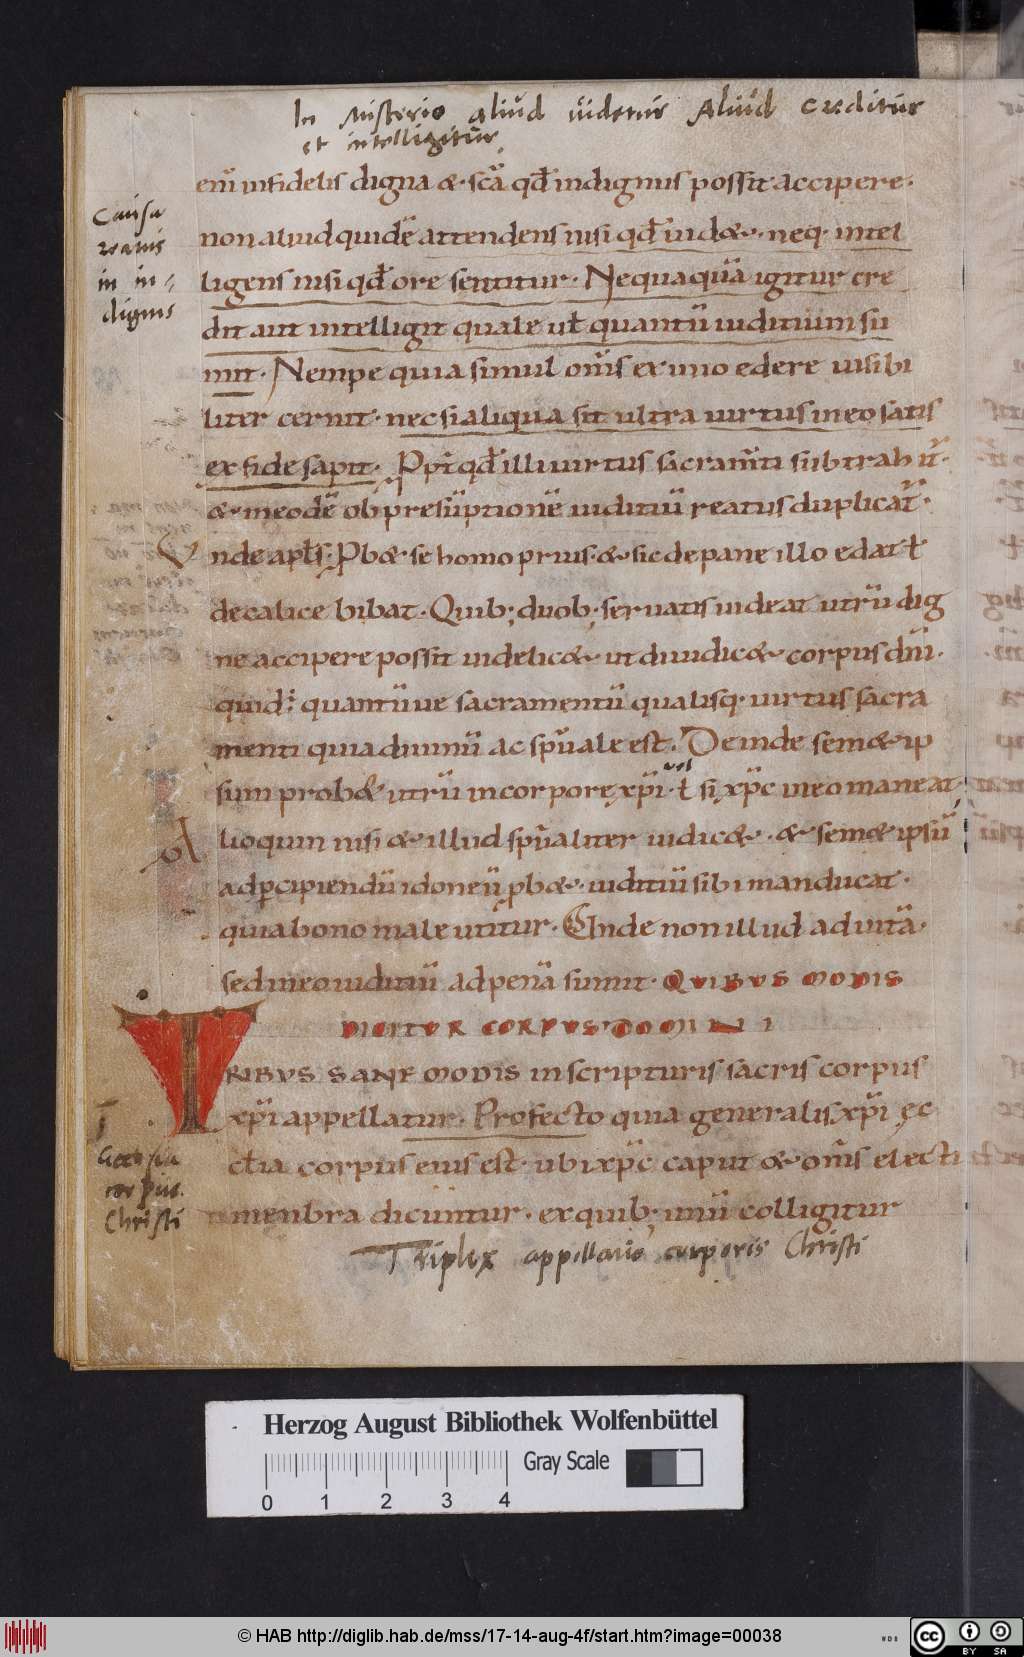 In Misterio aliud uidetur Aliud Creditur
et intelligitur
eni̅ infidelis digna & sc̅a qd̅ indignus possit accipere·
Causa
reatus
in in-
dignis
non aliud quide̅ attendens nisi qd̅ uid&· neq· intel
ligens nisi qd̅ ore sentitur· Nequaqua̅ igitur cre
dit aut intelligit quale ul̅ quantu̅ iuditium su
mit· Nempe quia simul om̅s ex uno edere uisibi
liter cernit· nec si aliqua sit ultra uirtus in eo satis
ex fide sapit· Ppt̅ qd̅ illi uirtus sacram̅ti subtrahit̅·
& in eode̅ ob presu̅ptione̅ iuditiu̅ reatus duplicat̅·
Vnde apl̅s· Pb& se homo prius & sic de pane illo edat ł
de calice bibat· Quib; duob; seruatis uideat utru̅ dig
ne accipere possit uidelic& ut diiudic& corpus dn̅i·
quid; quantu̅ue sacramentu̅ qualisq· uirtus sacra
menti quia diuinu̅ ac sp̅uale est· Deinde sem&ip
sum prob& utru̅ in corpore xp̅i· ł si xp̅c in eo maneat·
uel
Alioquin nisi & illud sp̅ualiter iudic&· & sem&ipsu̅
ad p̱cipiendu̅ idoneu̅ pb&· iuditiu̅ sibi manducat·
quia bono male utitur· Unde non illud ad uita̅·
sed in eo iuditiu̅ ad pena̅ sumit· QVIBVS MODIS
DICITVR CORPVS DOMINI
TRIBVS SANE MODIS in scripturis sacris corpus
xp̅i appellatur· Profecto quia generalis xp̅i ec
cl̅ia corpus eius est· ubi xp̅c caput & om̅s electi
menbra dicuntur· ex quib; unu̅ colligitur
I
Ecclesia
corpus
Christi
Triplex appellatio corporis Christi
Herzog August Bibliothek Wolfenbüttel
Gray Scale
0 1 2 3 4
© HAB http://diglib.hab.de/mss/17-14-aug-4f/start.htm?image=00038
WDB
cc BY SA